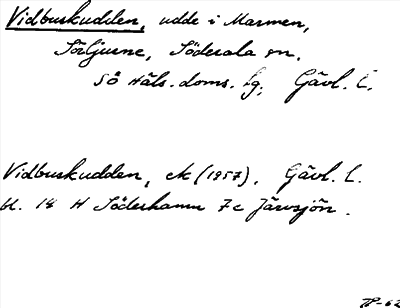 Vidbuskudden, udde i Marmen,
Sörljusne, Söderala sn.
SÖ Häls. doms. fg, Gävl. L.
Vidbuskudden, ek (1957), Gävl. L.
bl. 14 H Söderhamn 7c Järvsjön.